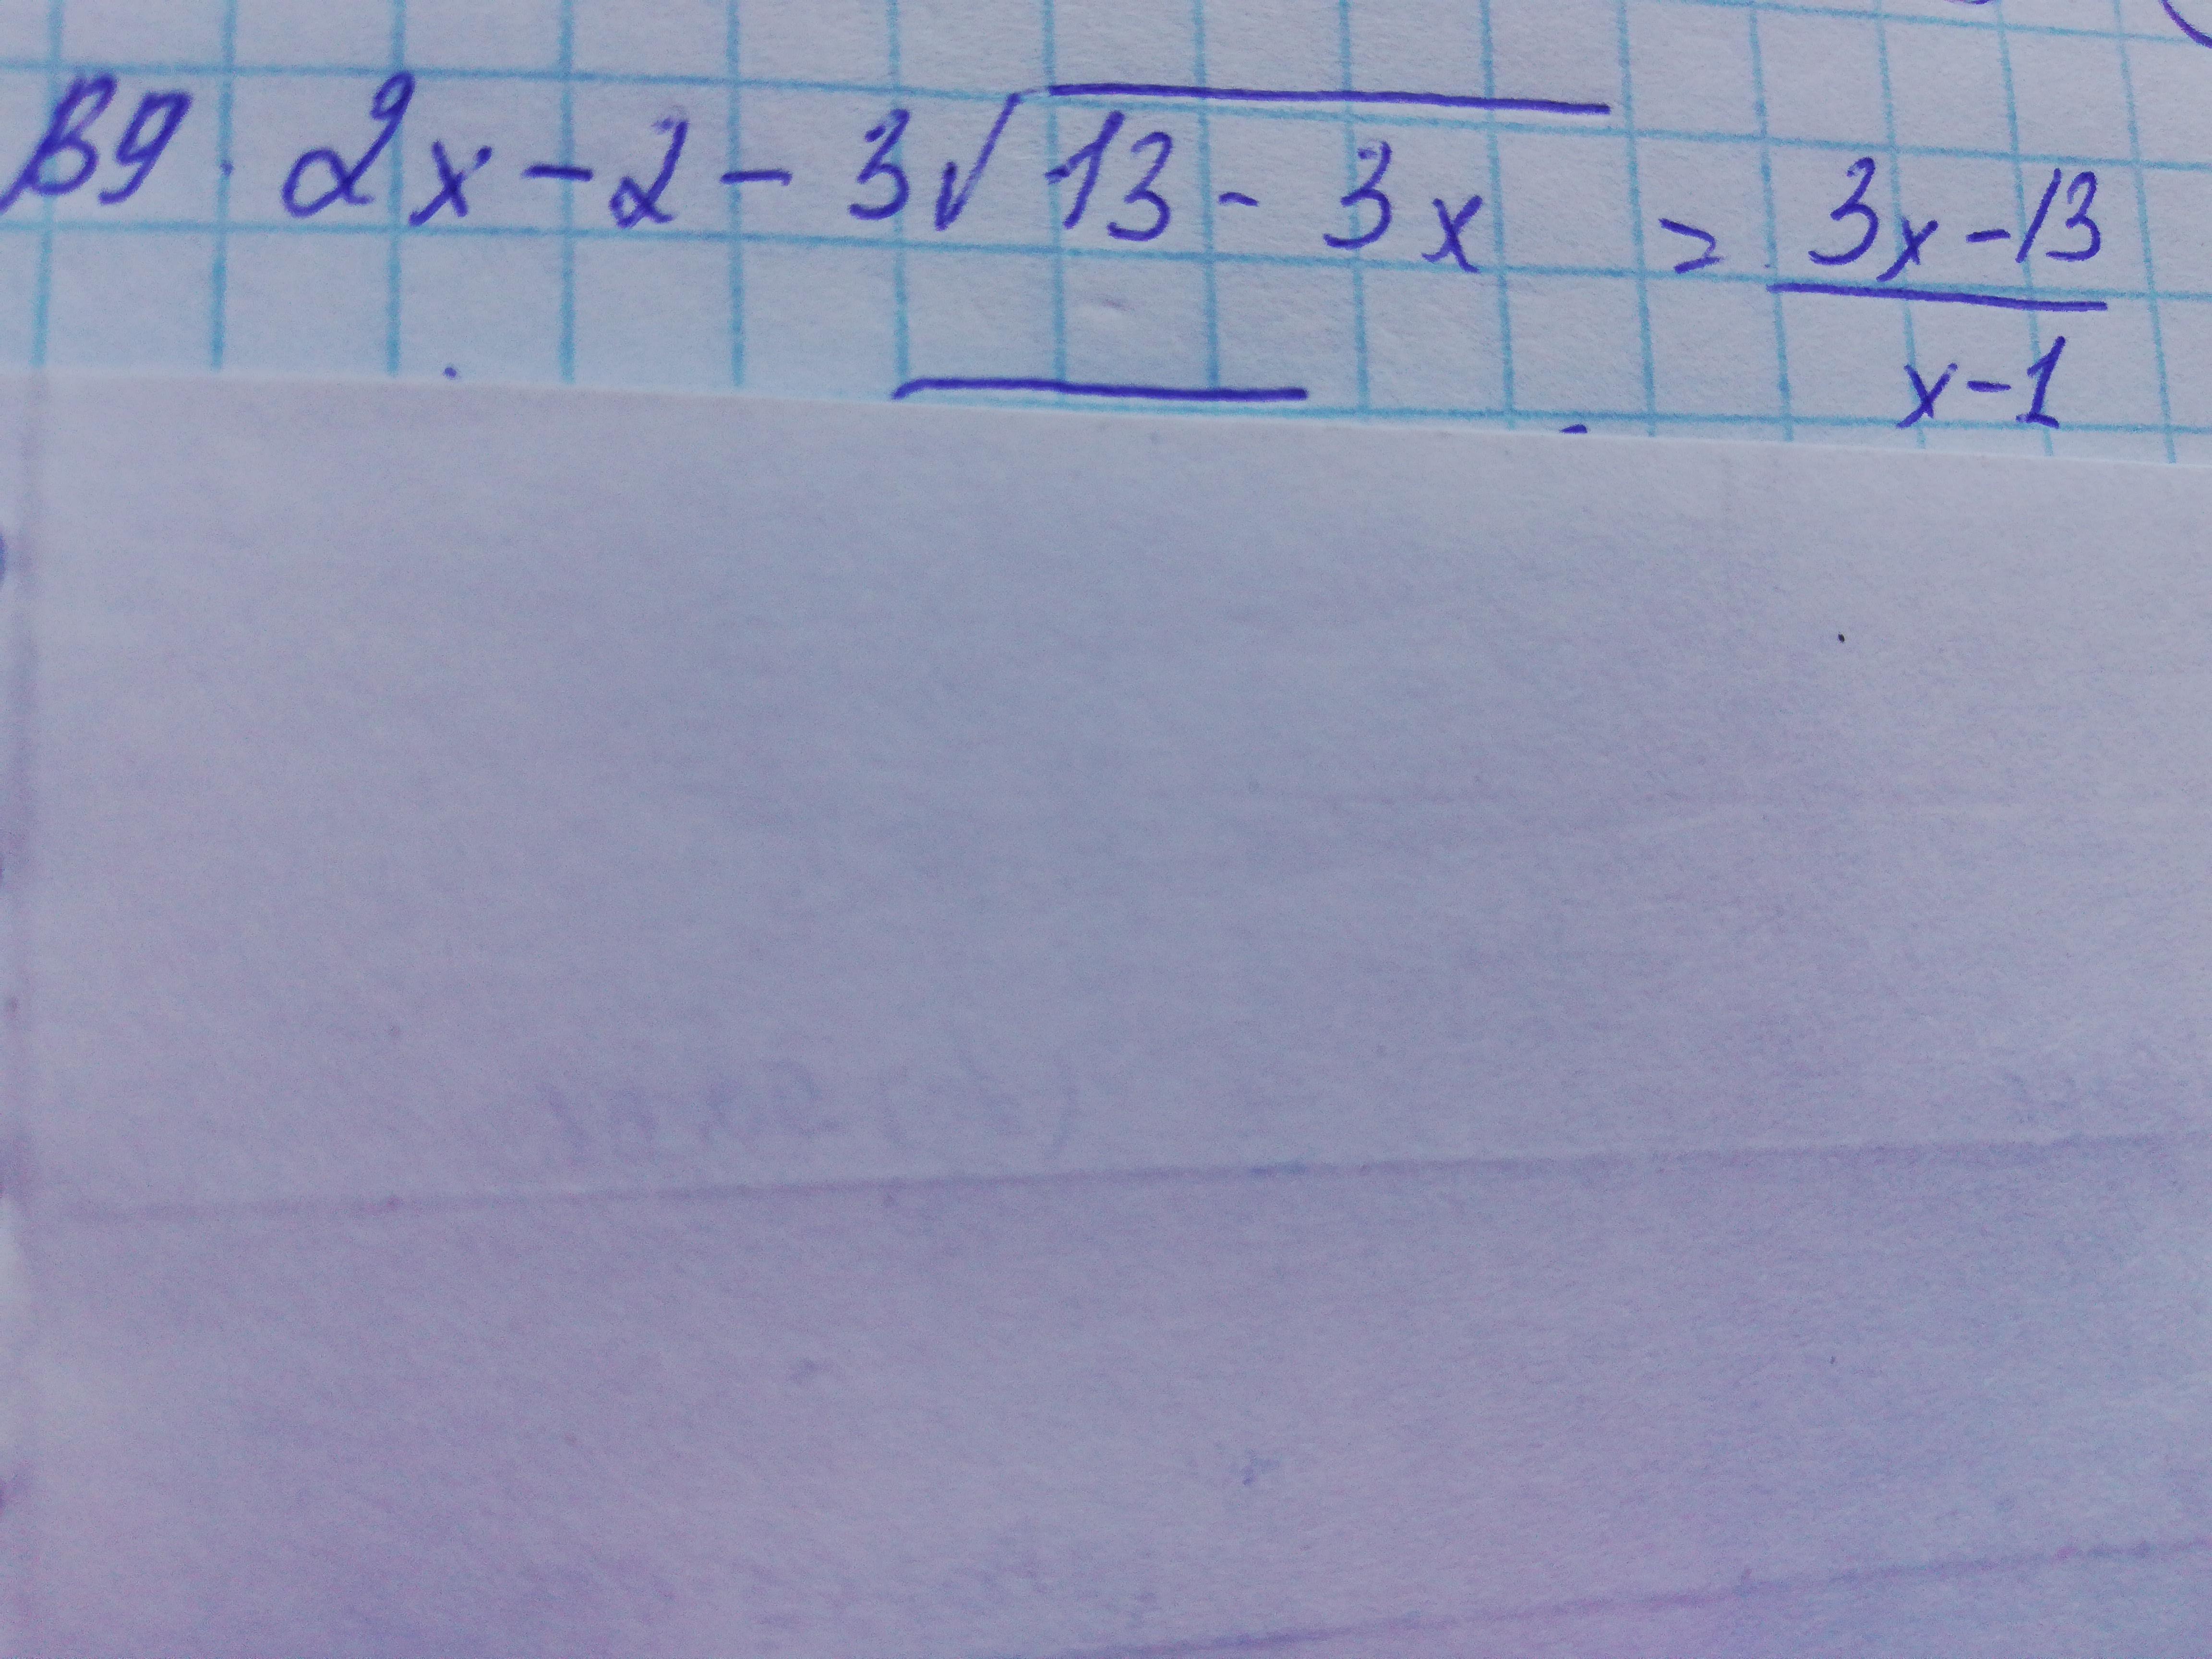 В9. 2x - 2 - 3√13 - 3x = 3x - 13
x - 1